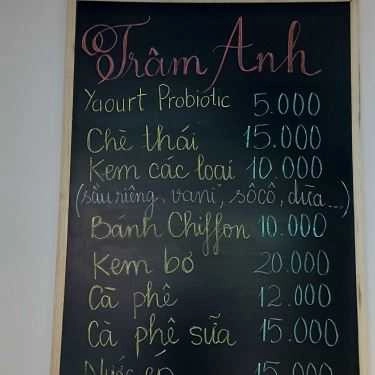 Trâm Anh
Yaourt Probiotic 5.000
Chè thái 15.000
Kem các loại 10.000
(sầu riêng, vani, sôcô, dừa...)
Bánh Chiffon 10.000
Kem bơ 20.000
Cà phê 12.000
Cà phê sữa 15.000
Nước ép 15.000